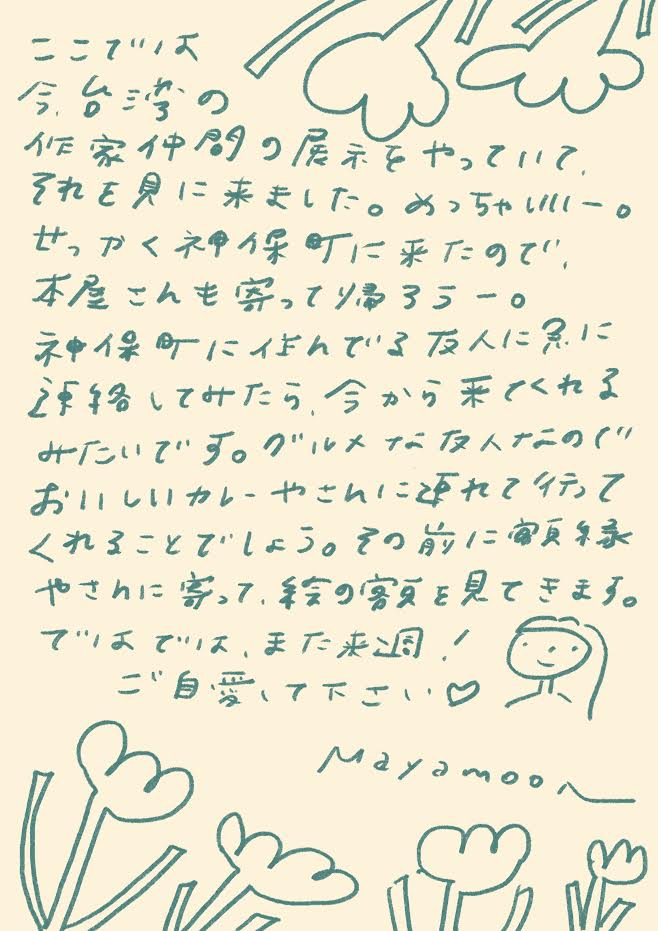 ここでは
今、台湾の
作家仲間の展示をやっていて、
それを見に来ました。めっちゃいいー。
せっかく神保町に来たので、
本屋さんも寄って帰ろうー。
神保町に住んでる友人に急に
連絡してみたら、今から来てくれる
みたいです。グルメな友人なので
おいしいカレーやさんに連れて行って
くれることでしょう。その前に額縁
やさんに寄って、絵の額を見てきます。
ではでは、また来週!
ご自愛して下さい♡
Mayamoon